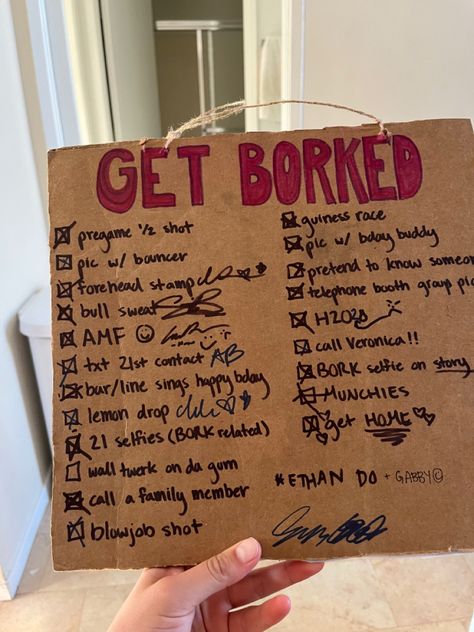 GET BORKED
pregame 1/2 shot
pic w/ bouncer
forehead stamp
bull sweat
AMF
txt 21st contact AB
bar/line sings happy bday
lemon drop
21 selfies (BORK related)
wall twerk on da gum
call a family member
blowjob shot
guiness race
pic w/ bday buddy
pretend to know someon
telephone booth group pic
H2O
call Veronica!!
BORK selfie on story
MUNCHIES
get HOME
*ETHAN DO + GABBY